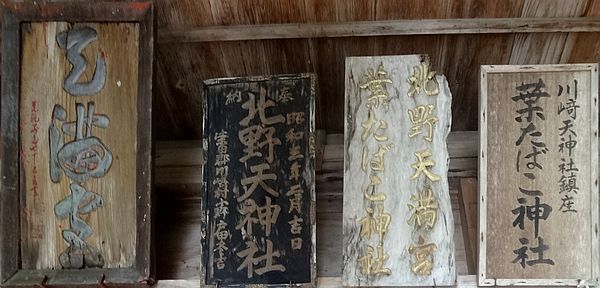 天満宮
奉納
昭和三年二月吉日
北野天神社
北野天満宮
葉たばこ神社
川﨑天神社鎮座
葉たばこ神社